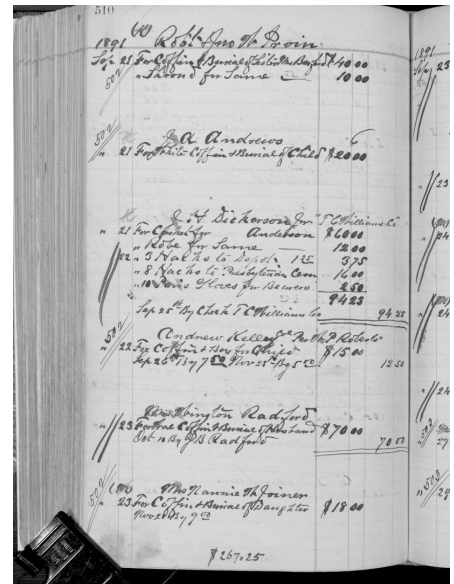 510
Robt & Jno W Proin
1891
Sep 21 For Coffin & Burial of Sister $40 00
" Shroud for Same 10 00
502
J A Andrews
" 21 For White Coffin & Burial of Child $20 00
J H Dickerson Jr " T C Williams Co
" 21 For Casket for Anderson $60 00
" Robe for Same 12 00
22 " 3 Hacks to Depot 1 25 3 75
" 8 Hacks to Presbyterian Cem 16 00
" 10 Pairs Gloves for Bearers 2 50
94 25
Sep 25th By Check T C Williams Co 94 25
502
Andrew Kelley Per M P Roberts
" 22 For Coffin & Box for Child $15 00
Sep 26th By 7 50 Nov 25th By 5 00 12 50
Radford
" 23 For Coffin & Burial of Husband $70 00
Oct 10 By J B Radford 70 00
502
Mrs Nannie M Joiner
" 23 For Coffin & Burial of Daughter $18 00
Nov 20 By 9 00
$267.25
1891
Sep 23
" 23
" 24
24
" 24
27
" 29